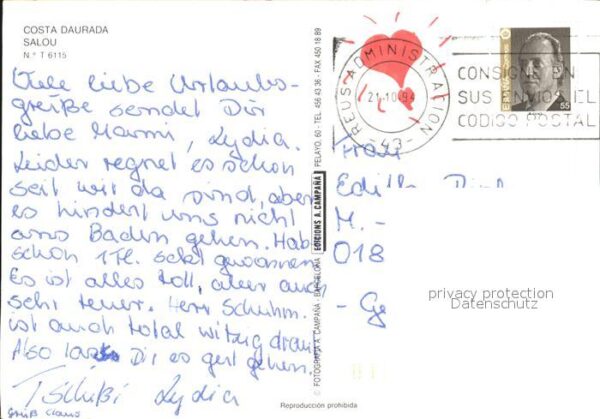 COSTA DAURADA
SALOU
N.º T 6115
Viele liebe Urlaubs-
grüße sendet Dir
liebe Mammi, Lydia.
Leider regnet es schon
seit wir da sind, aber
es hindert uns nicht
ans Baden gehen. Hab
schon 1 Fl. Sekt gewonnen
Es ist alles toll, aber auch
sehr teuer. Herr Schuhm.
ist auch total witzig drauf.
Also lass Dir es gut gehen.
Tschüßi Lydia
Gruß Claus
© FOTOGRAFIA A. CAMPAÑA - BARCELONA
EDICIONS A. CAMPAÑA
PELAYO, 60 - TEL. 456 43 36 - FAX 450 18 89
REUS-ADMINISTRATION
21-10-94
-43-
CONSIGNE EN
SUS ENVIOS EL
CODIGO POSTAL
ESPAÑA
55
Frau
Edith
M.-
018
- Ge
privacy protection
Datenschutz
Reproducción prohibida